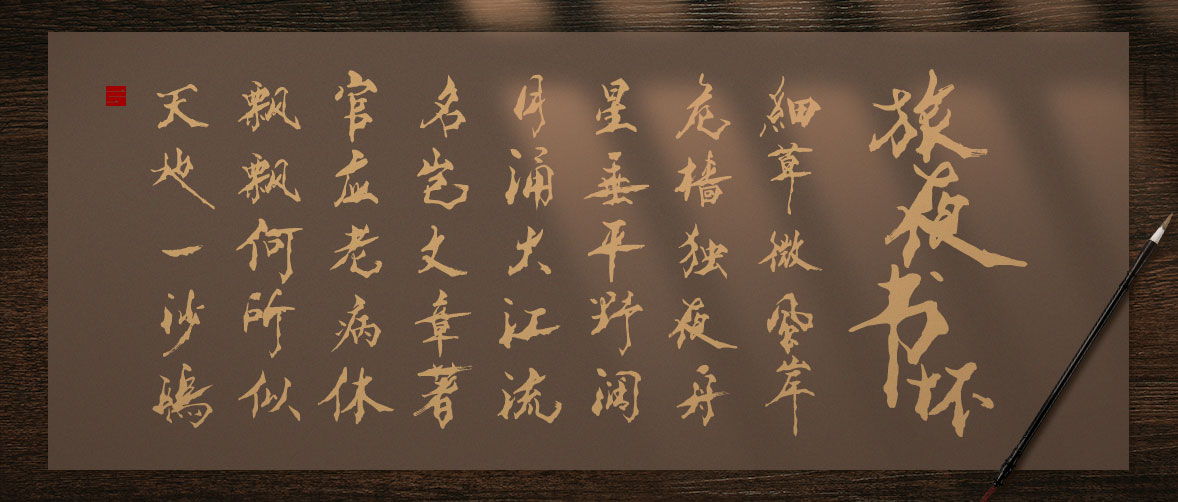 旅夜书怀
細草微風岸
危樯独夜舟
星垂平野阔
月涌大江流
名岂文章著
官应老病休
飘飘何所似
天地一沙鷗